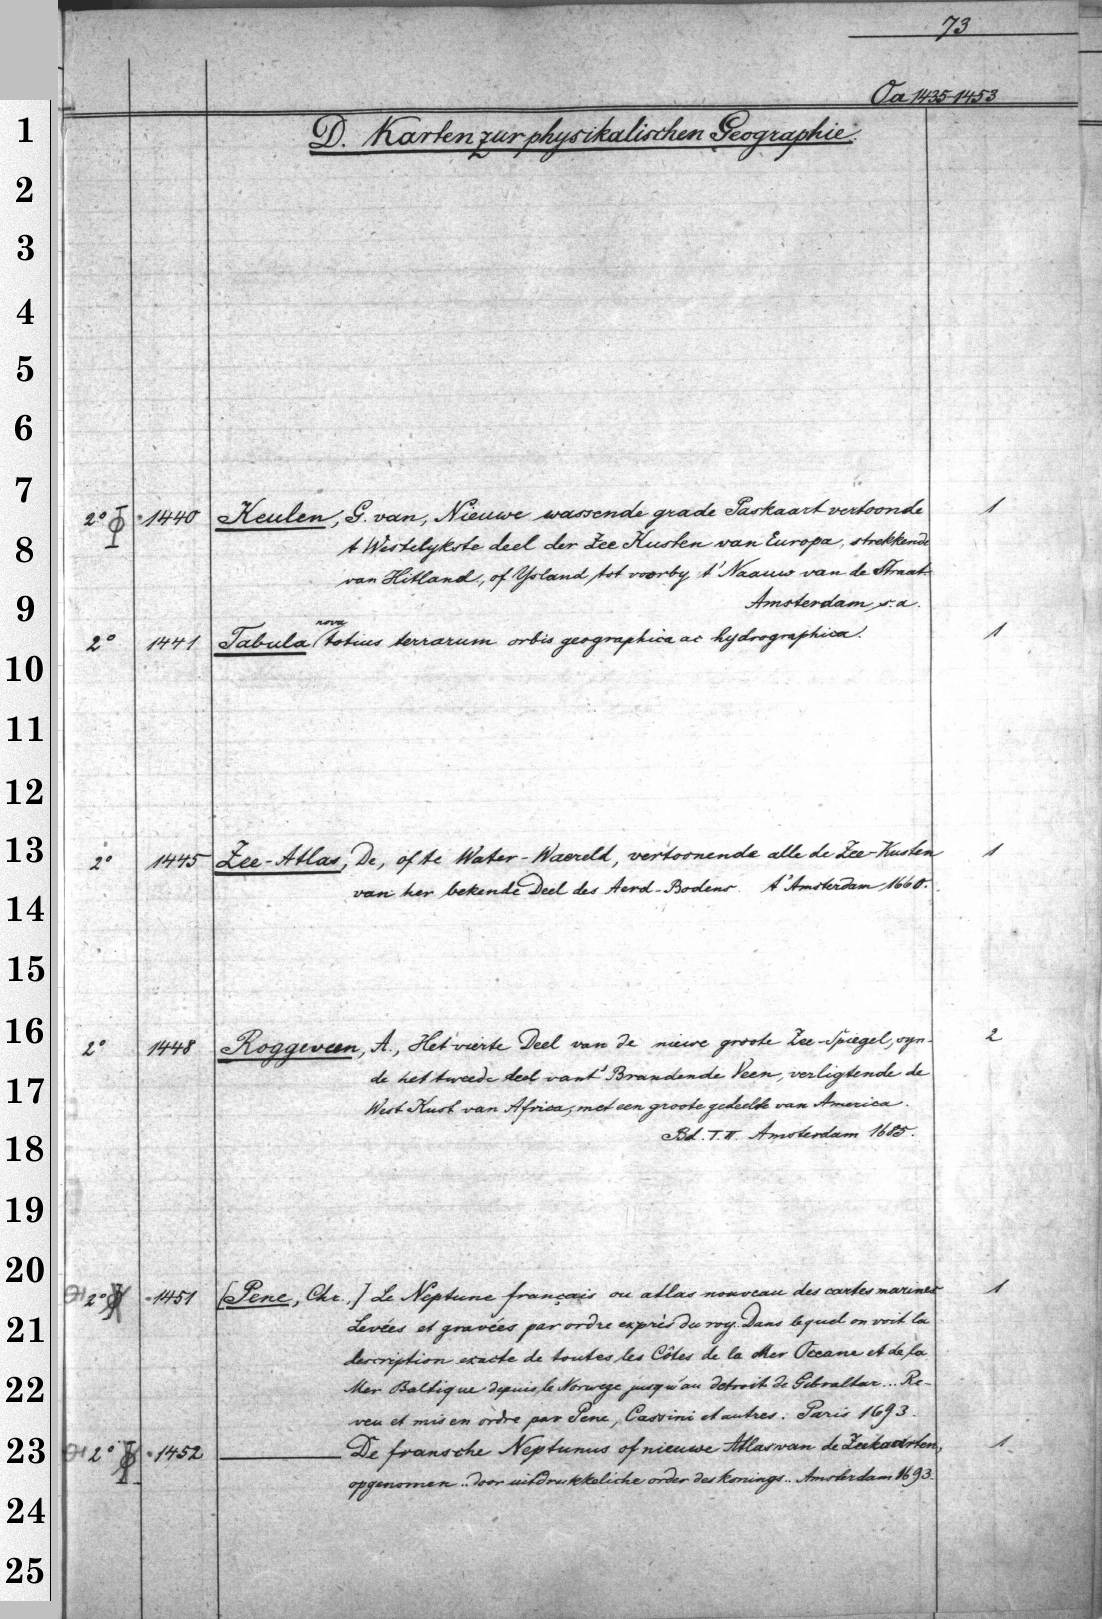 73
Oa 1435-1453
D. Karten zur physikalischen Geographie.
2° 1440 Keulen, G. van, Nieuwe wassende grade Paskaart vertoonde 1
t Westelykste deel der Zee Kusten van Europa, strekkende
van Hitland, of Ysland, tot voorby t' Naauw van de Straat
Amsterdam, s.a.
nova
2° 1441 Tabula totius terrarum orbis geographica ac hydrographica. 1
2° 1445 Zee-Atlas, De, ofte Water-Waereld, vertoonende alle de Zee-Kusten 1
van her bekende Deel des Aerd-Bodens. t'Amsterdam 1660.
2° 1448 Roggeveen, A., Het vierte Deel van de nieuwe groote Zee-Spiegel, syn- 2
de het tweede deel vant' Brandende Veen, verligtende de
West Kust van Africa, met een groote gedeelte van America.
Bd. I.II. Amsterdam 1685.
2° 1451 [Pene, Chr.,] Le Neptune français ou atlas nouveau des cartes marines 1
Levées et gravées par ordre exprès du roy. Dans lequel on voit la
description exacte de toutes les Côtes de la Mer Oceane et de la
Mer Baltique depuis le Norwege jusqu'au detroit de Gibraltar... Re-
veu et mis en ordre par Pene, Cassini et autres. Paris 1693.
2° 1452 De fransche Neptunus of nieuwe Atlas van de Zeekaarten, 1
opgenomen .. door uitdrukkeliche order des konings.. Amsterdam 1693.
1
2
3
4
5
6
7
8
9
10
11
12
13
14
15
16
17
18
19
20
21
22
23
24
25